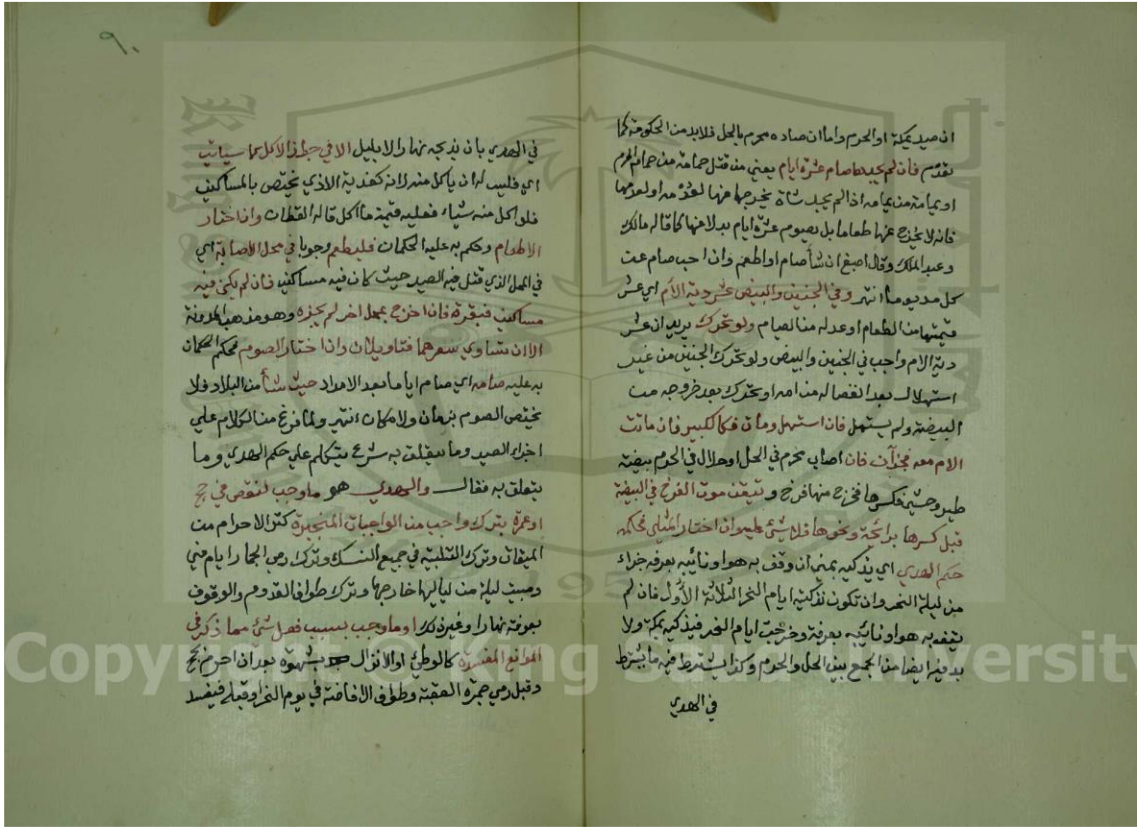 ان صيد بمكة او الحرم واما ان صاده محرم بالحل فلا بد من الحكومة كما
تقدم فان لم يجدها صام عشرة ايام يعني من قتل حمامة من حمام الحرم
او يمامة من يمامه اذا لم يجد شاة يخرجها عنها لعدمه او لعدمها
فانه لا يخرج عنها طعاما بل يصوم عشرة ايام بدلا عنها كما قاله مالك
وعبد الملك وقال اصبغ ان شا صام او اطعم وان احب صام عن
كل مد يوما انتهر وفي الجنين والبيض عشر دية الام اي عشر
قيمتها من الطعام او عدله من الصيام ولو تحرك يريد ان عشر
دية الام واجب في الجنين والبيض ولو تحرك الجنين من غير
استهلال بعد انفصاله من امه او تحرك بعد خروجه من
البيضة ولم يستهل فان استهل ومات فكالكبير فان ماتت
الام معه فجزآن فان اصاب محرم في الحل او حلال في الحرم بيضة
طير وحشي فكسرها فخرج منها فرخ و تيقن موت الفرخ في البيضة
قبل كسرها برائحة ونحوها فلا شئ عليه وان اختار المثلي فحكمه
حكم الهدي اي يذكيه بمنى ان وقف به هو او نائبه بعرفة جزاء
من ليلة النحر وان تكون تذكيته ايام النحر الثلاثة الأول فان لم
يقف به هو او نائبه بعرفة وخرجت ايام النحر فيذكيه بمكة ولا
بد فيه ايضا من الجمع بين الحل والحرم وكذا يشترط فيه ما يشترط
في الهدي
٩٠
في الهدي بان يذبحه نهارا لا بليل الا في الاكل كما سياتي
اي فليس له ان ياكل منه لانه كفدية الاذي يختص بالمساكين
فلو اكل منه شياء فعليه قيمة ما اكل قاله القطان وان اختار
الاطعام وحكم به عليه الحكمان فليطعم وجوبا في محل الاصابة اي
في المحل الذي قتل فيه الصيد حيث كان فيه مساكين فان لم يكن فيه
مساكين فبقربه فان اخرج بمحل اخر لم يجزه وهو مذهب المدونة
الا ان تساوي سعرهما فتاويلان وان اختار الصوم فحكم الحكمان
به عليه صامه اي صام اياما بعد الامداد حيث شأ من البلاد فلا
يختص الصوم بزمان ولا مكان انتهر ولما فرغ من الكلام علي
اجزاء الصيد وما يتعلق به شرع يتكلم علي حكم الهدي وما
يتعلق به فقال والهدي هو ما وجب لنقص في حج
او عمرة بترك واجب من الواجبات المنجبرة كترك الاحرام من
الميقات وترك التلبية في جميع النسك وترك رمي الجمار ايام مني
ومبيت ليلة من لياليها خارجها وترك طواف القدوم والوقوف
بعرفة نهارا وغير ذلك او ما وجب بسبب فعل شئ مما ذكر في
الموانع المفسدة كالوطئ او الانزال بشهوة بعد ان احرم بحج
وقبل رمي جمرة العقبة وطواف الافاضة في يوم النحر او قبله فيفسد
Copyright © King Saud University
1957